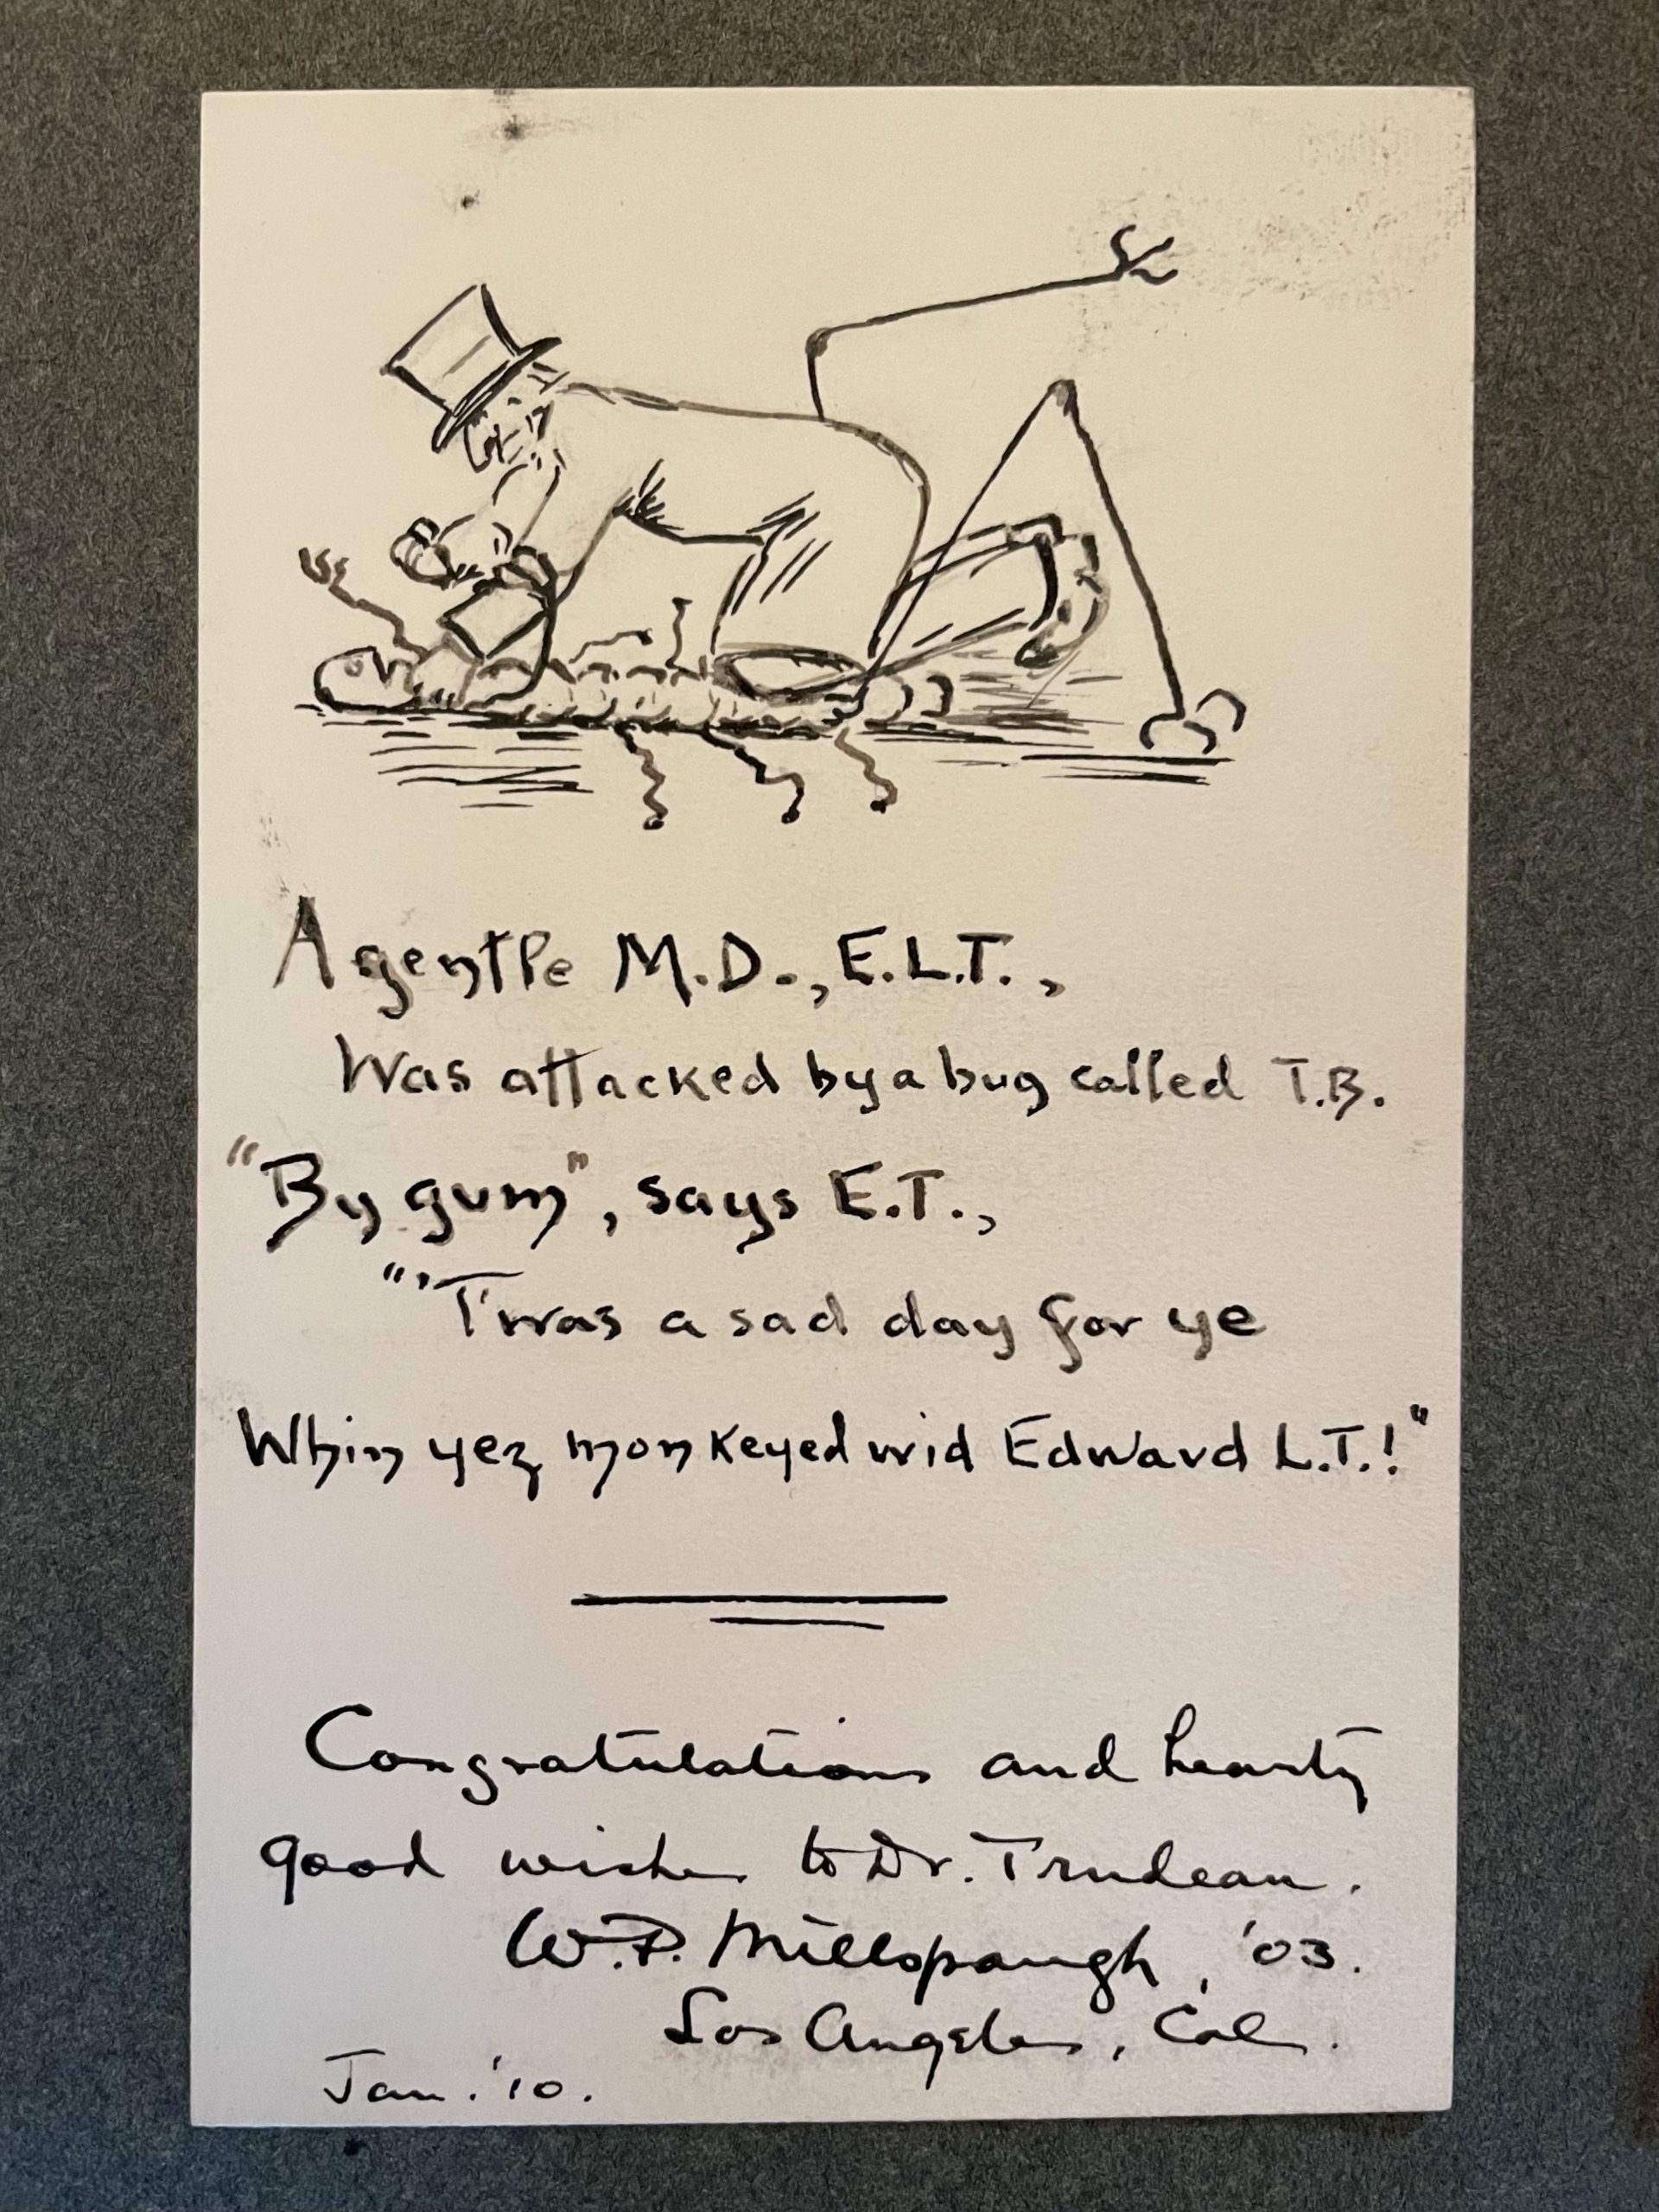 A gentle M.D., E.L.T.,
Was attacked by a bug called T.B.
"By gum", says E.T.,
"'Twas a sad day for ye
Whin yez monkeyed wid Edward L.T.!"
Congratulations and hearty
good wishes to Dr. Trudeau.
W.P. Millspaugh, '03.
Los Angeles, Cal.
Jan. '10.